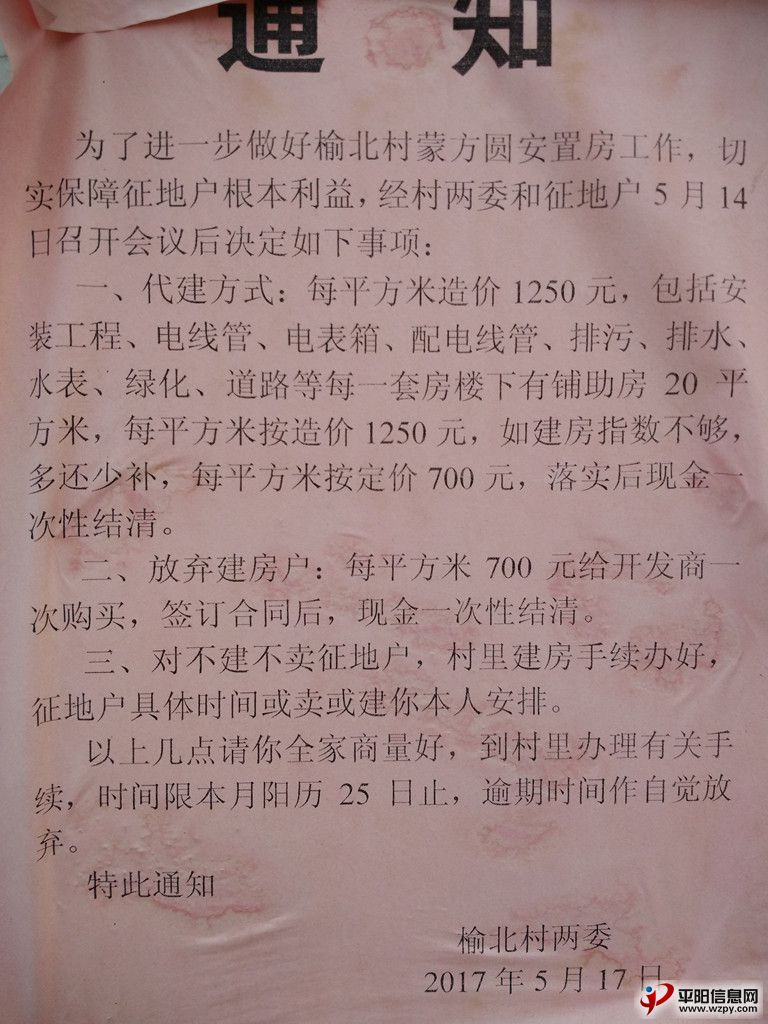 通知
为了进一步做好榆北村蒙方圆安置房工作，切
实保障征地户根本利益，经村两委和征地户 5 月 14
日召开会议后决定如下事项：
一、代建方式：每平方米造价 1250 元，包括安
装工程、电线管、电表箱、配电线管、排污、排水、
水表、绿化、道路等每一套房楼下有铺助房 20 平
方米，每平方米按造价 1250 元，如建房指数不够，
多还少补，每平方米按定价 700 元，落实后现金一
次性结清。
二、放弃建房户：每平方米 700 元给开发商一
次购买，签订合同后，现金一次性结清。
三、对不建不卖征地户，村里建房手续办好，
征地户具体时间或卖或建你本人安排。
以上几点请你全家商量好，到村里办理有关手
续，时间限本月阳历 25 日止，逾期时间作自觉放
弃。
特此通知
榆北村两委
2017 年 5 月 17 日
平阳信息网
www.wzpy.com